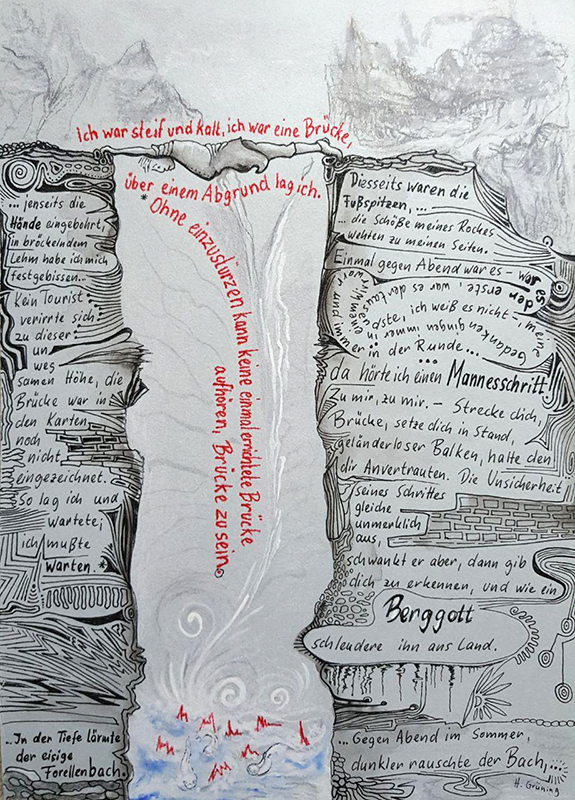 Ich war steif und kalt, ich war eine Brücke,
über einem Abgrund lag ich.
*Ohne einzustürzen kann keine einmal errichtete Brücke
aufhören, Brücke zu sein.
... jenseits die
Hände eingebohrt,
in bröckelndem
Lehm habe ich mich
festgebissen...
Kein Tourist
verirrte sich
zu dieser
un
weg
samen Höhe, die
Brücke war in
den Karten
noch
nicht
eingezeichnet.
So lag ich und
wartete;
ich mußte
warten.*
...In der Tiefe lärmte
der eisige
Forellenbach.
Diesseits waren die
Fußspitzen, ...
... die Schöße meines Rockes
wehten zu meinen Seiten.
Einmal gegen Abend war es – war es
der erste, war es der tausendste, ich weiß es nicht – meine
Gedanken gingen immer in einem Wirrwarr und immer in der Runde...
...
da hörte ich einen Mannesschritt!
Zu mir, zu mir. – Strecke dich,
Brücke, setze dich in Stand,
geländerloser Balken, halte den
dir Anvertrauten. Die Unsicherheit
seines Schrittes
gleiche
unmerklich
aus,
schwankt er aber, dann gib
dich zu erkennen, und wie ein
Berggott
schleudere ihn ans Land.
... Gegen Abend im Sommer,
dunkler rauschte der Bach,...
H. Grüning